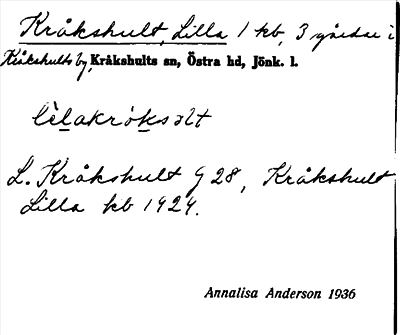 Kråkshult, Lilla 1 kb, 3 gårdar i
Kråkshults by, Kråkshults sn, Östra hd, Jönk. l.
lìlakrò̀ksɔlt
L. Kråkshult G 28, Kråkshult
Lilla kb 1924.
Annalisa Anderson 1936